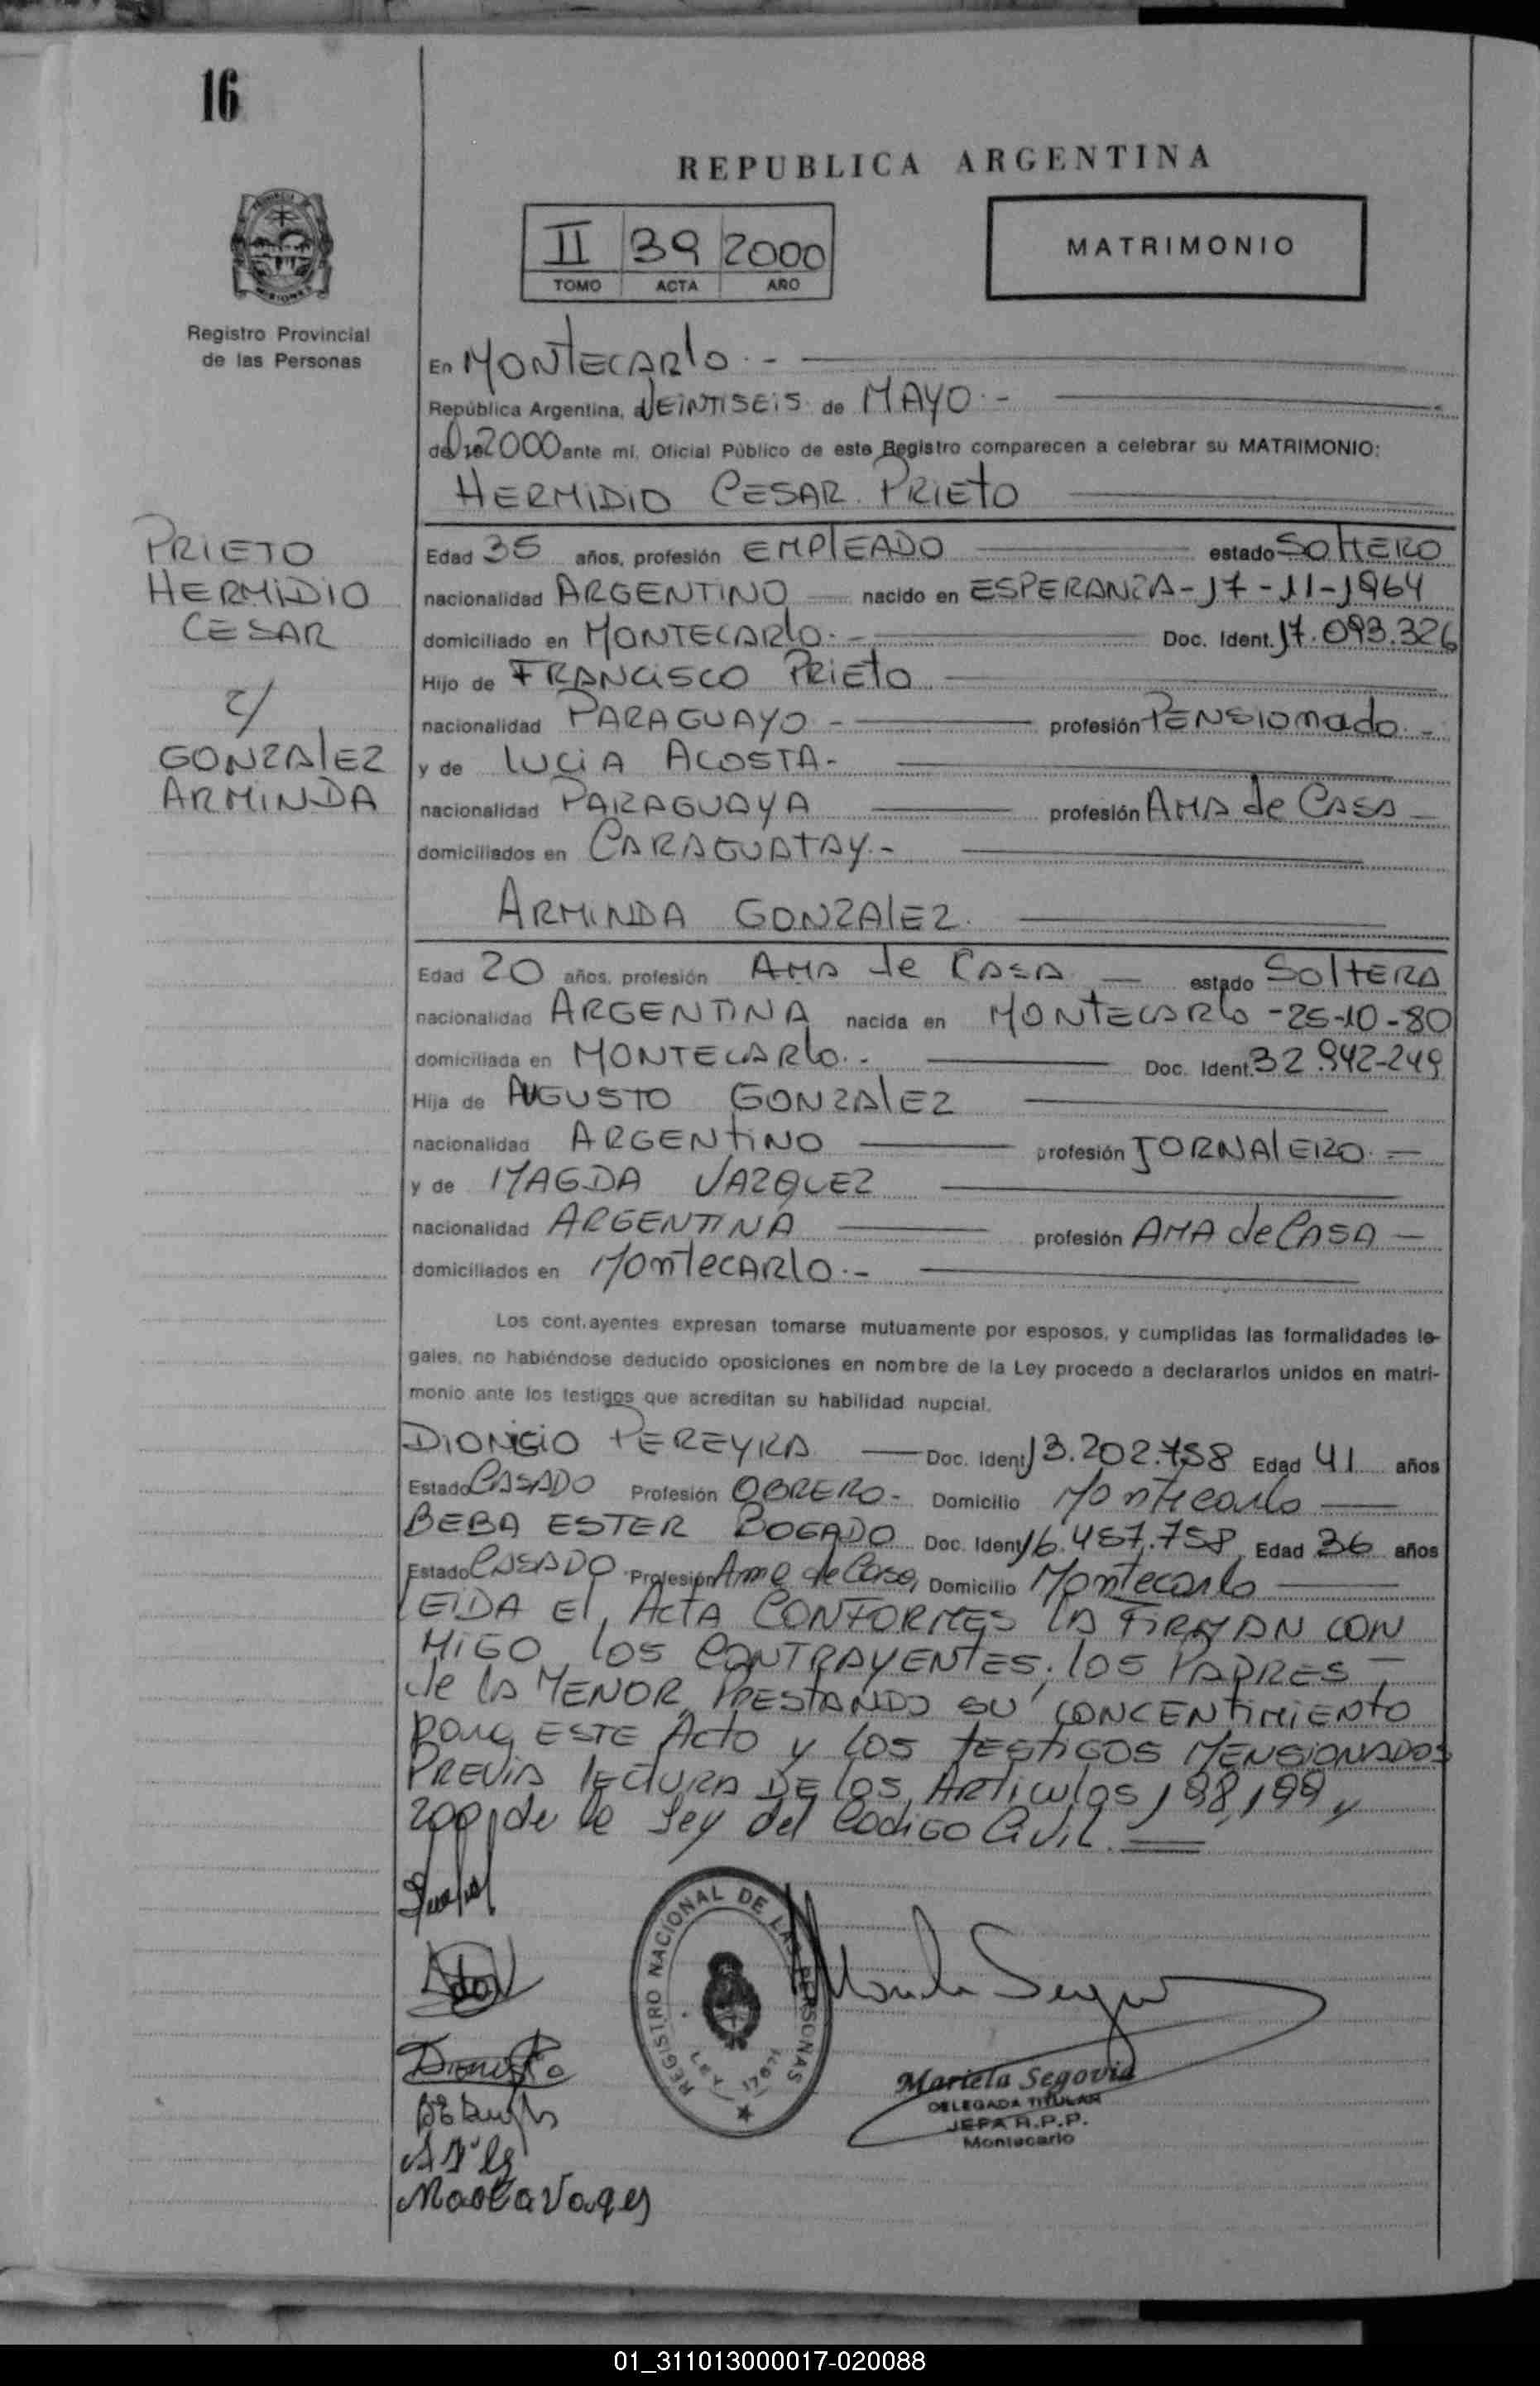 16
REPUBLICA ARGENTINA
II 39 2000
TOMO ACTA AÑO
MATRIMONIO
Registro Provincial
de las Personas
En MONTECARLO.-
República Argentina, VEINTISEIS de MAYO.-
del 2000 ante mí, Oficial Público de este Registro comparecen a celebrar su MATRIMONIO:
HERMIDIO CESAR PRIETO
PRIETO
HERMIDIO
CESAR
c/
GONZALEZ
ARMINDA
Edad 35 años, profesión EMPLEADO estado SOLTERO
nacionalidad ARGENTINO nacido en ESPERANZA - 17 - 11 - 1964
domiciliado en MONTECARLO.- Doc. Ident. 17.093.326
Hijo de FRANCISCO PRIETO
nacionalidad PARAGUAYO - profesión PENSIONADO.-
y de LUCIA ACOSTA-
nacionalidad PARAGUAYA profesión AMA de CASA
domiciliados en CARAGUATAY.-
ARMINDA GONZALEZ.
Edad 20 años, profesión AMA de CASA estado SOLTERA
nacionalidad ARGENTINA nacida en MONTECARLO - 25-10-80
domiciliada en MONTECARLO.- Doc. Ident. 32.942-249
Hija de AUGUSTO GONZALEZ
nacionalidad ARGENTINO profesión JORNALERO.-
y de MAGDA VAZQUEZ
nacionalidad ARGENTINA profesión AMA de CASA -
domiciliados en MONTECARLO.-
Los cont.ayentes expresan tomarse mutuamente por esposos, y cumplidas las formalidades le-
gales, no habiéndose deducido oposiciones en nombre de la Ley procedo a declararlos unidos en matri-
monio ante los testigos que acreditan su habilidad nupcial.
DIONICIO PEREYRA Doc. Ident. 13.202.758 Edad 41 años
Estado CASADO Profesión OBRERO- Domicilio Montecarlo
BEBA ESTER BOGADO Doc. Ident. 16.457.758 Edad 36 años
Estado CASADO Profesión Ama de Casa, Domicilio Montecarlo
LEIDA El, ACTA CONFORMES LA FIRMAN CON
MIGO, LOS CONTRAYENTES, LOS PADRES -
de LA MENOR, PRESTANDO SU CONCENTIMIENTO
para ESTE ACTO y LOS TESTIGOS MENSIONADOS
PREVIA LECTURA DE LOS ARTICULOS 198, 199 y
200, de la Ley del CODIGO CIVIL.
REGISTRO NACIONAL DE LAS PERSONAS
LEY 17671
Mariela Segovia
DELEGADA TITULAR
JEFA R.P.P.
Montecarlo
01_311013000017-020088